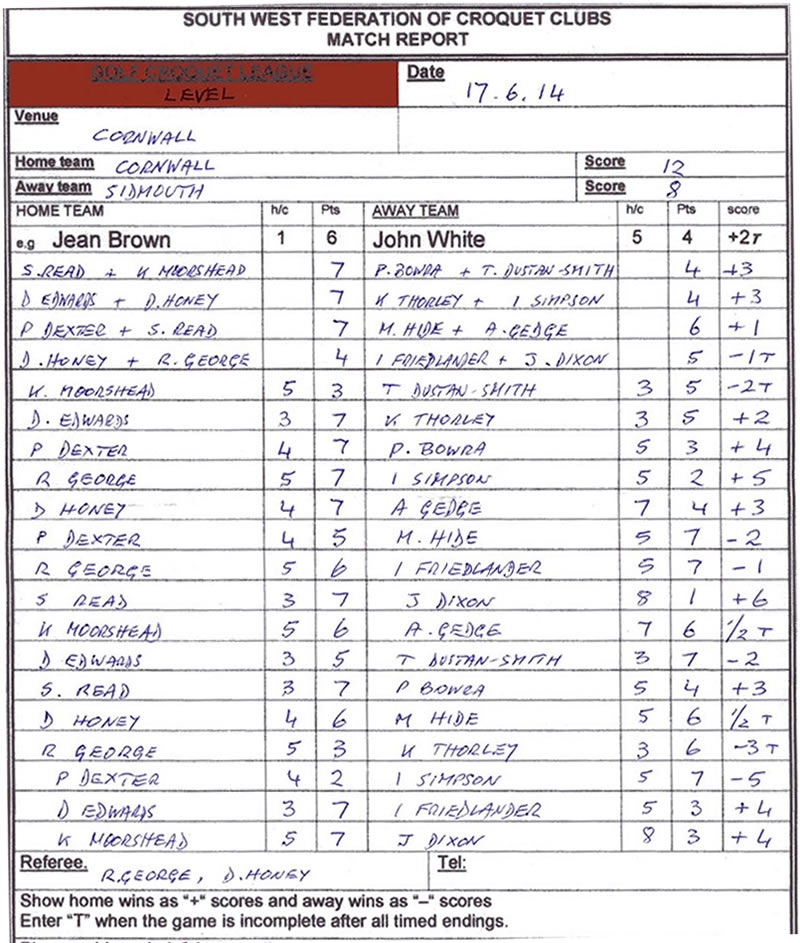 SOUTH WEST FEDERATION OF CROQUET CLUBS
MATCH REPORT
GOLF CROQUET LEAGUE
LEVEL
Date
17.6.14
Venue
CORNWALL
Home team CORNWALL Score 12
Away team SIDMOUTH Score 8
HOME TEAM h/c Pts AWAY TEAM h/c Pts score
e.g Jean Brown 1 6 John White 5 4 +2T
S.READ + K MOORSHEAD 7 P.BOWRA + T. DUSTAN-SMITH 4 +3
D EDWARDS + D.HONEY 7 K THORLEY + I SIMPSON 4 +3
P DEXTER + S. READ 7 M. HIDE + A.GEDGE 6 +1
D.HONEY + R.GEORGE 4 I FRIEDLANDER + J.DIXON 5 -1T
K. MOORSHEAD 5 3 T DUSTAN-SMITH 3 5 -2T
D. EDWARDS 3 7 K THORLEY 3 5 +2
P DEXTER 4 7 P. BOWRA 5 3 +4
R GEORGE 5 7 I SIMPSON 5 2 +5
D HONEY 4 7 A GEDGE 7 4 +3
P DEXTER 4 5 M. HIDE 5 7 -2
R GEORGE 5 6 I FRIEDLANDER 5 7 -1
S READ 3 7 J DIXON 8 1 +6
K MOORSHEAD 5 6 A.GEDGE 7 6 1/2 T
D EDWARDS 3 5 T DUSTAN-SMITH 3 7 -2
S. READ 3 7 P BOWRA 5 4 +3
D HONEY 4 6 M HIDE 5 6 1/2 T
R GEORGE 5 3 K THORLEY 3 6 -3T
P DEXTER 4 2 I SIMPSON 5 7 -5
D EDWARDS 3 7 I FRIEDLANDER 5 3 +4
K MOORSHEAD 5 7 J DIXON 8 3 +4
Referee. R.GEORGE, D.HONEY Tel:
Show home wins as "+" scores and away wins as "–" scores
Enter "T" when the game is incomplete after all timed endings.